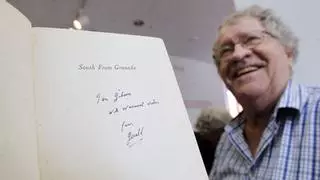 South From Granada
Ian Gibson
with warmest wishes
from
Gerald